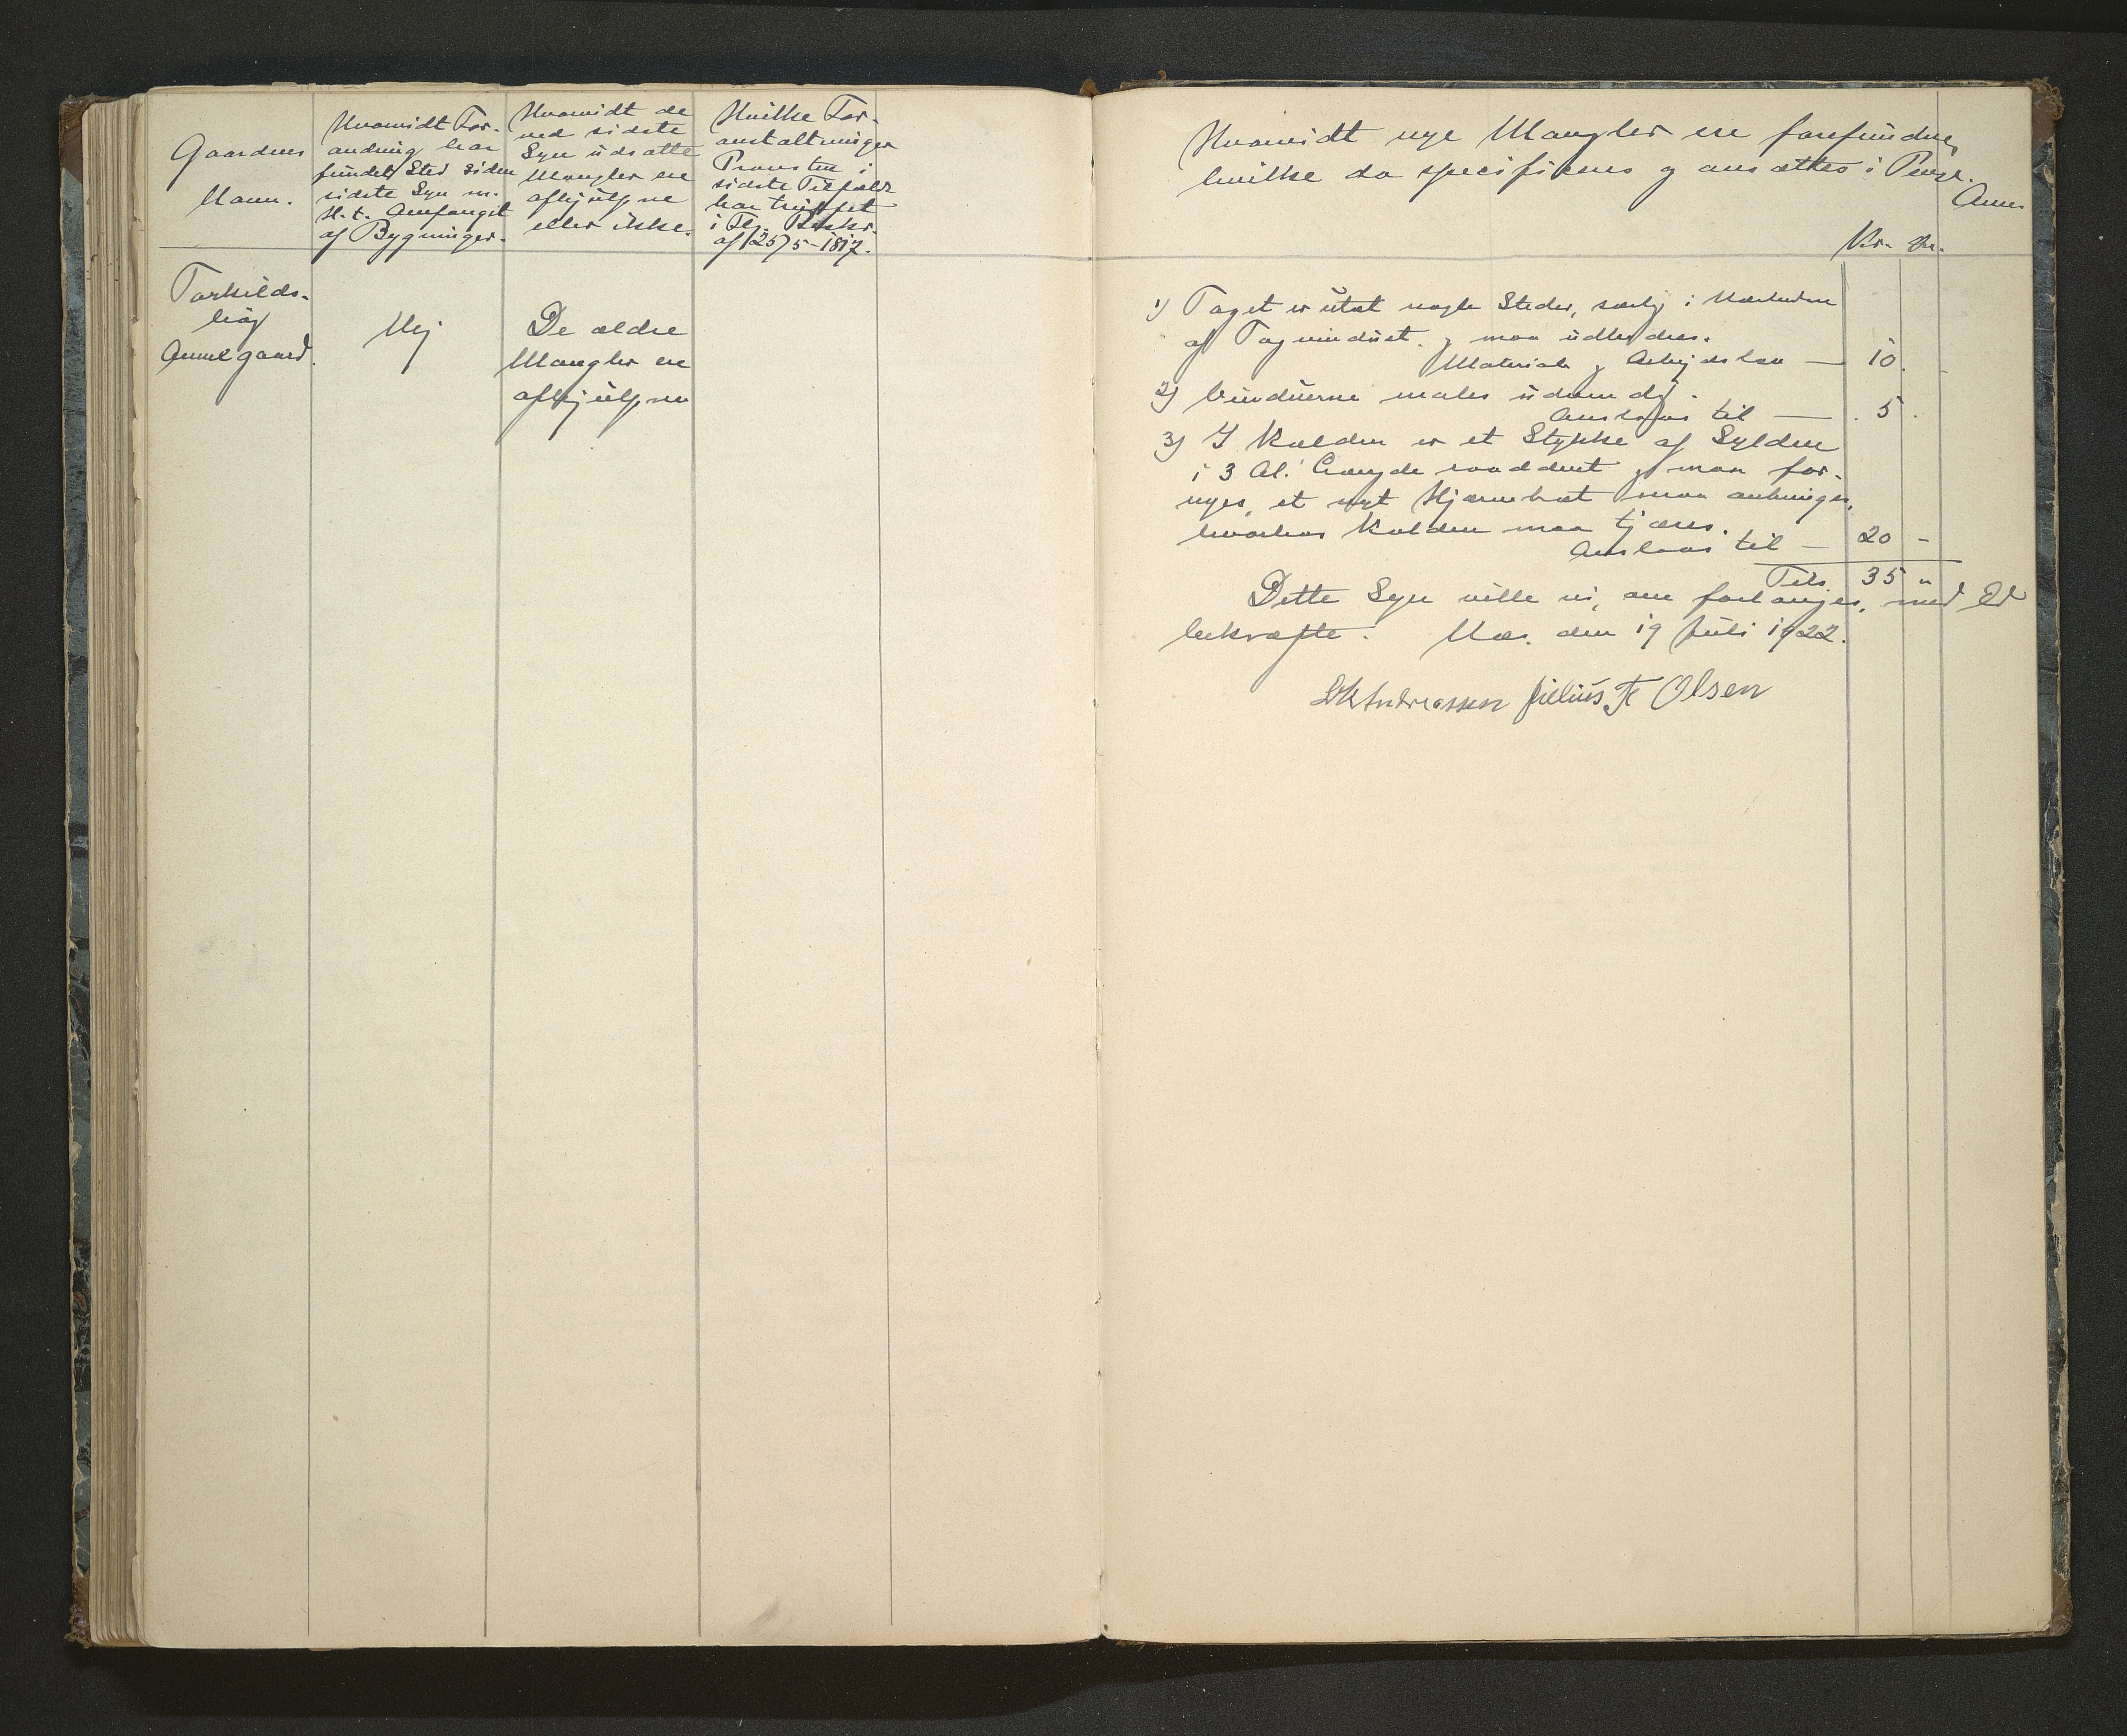 Gaardens
Navn.
Hvorvidt For-
andring har
fundet Sted siden
sidste Syn m.
H. t. Omfanget
af Bygninger.
Hvorvidt de
ved sidste
Syn udsatte
Mangler ere
afhjulpne
eller ikke.
Hvilke For-
anstaltninger
Provsten i
sidste Tilfælde
har truffet
i Flg. Reskr.
af 25/5-1817.
Torkilds-
høj
Annexgaard.
Nej
De ældre
Mangler ere
afhjulpne
Hvorvidt nye Mangler ere forefundne,
hvilke da specificeres og ansættes i Penge.
Anm
Kr. Øre.
1) Taget er utæt nogle Steder, særlig i Nærheden
af Tagvinduet. og maa udbedres.
Materiale og Arbejdsløn — 10.
2) Vinduerne males udvendig.
Anslaas til — 5.
3) I Kulden er et Stykke af Sylden
i 3 Al. Længde raaddent og maa for-
nyes, et nyt Hjørnebræt maa anbringes,
hvorhos Kulden maa tjæres.
Anslaas til — 20 -
Tils. 35 "
Dette Syn ville vi, om forlanges, med Ed
bekræfte. Næs. den 19 Juli 1922.
Andreassen Julius Fr Olsen